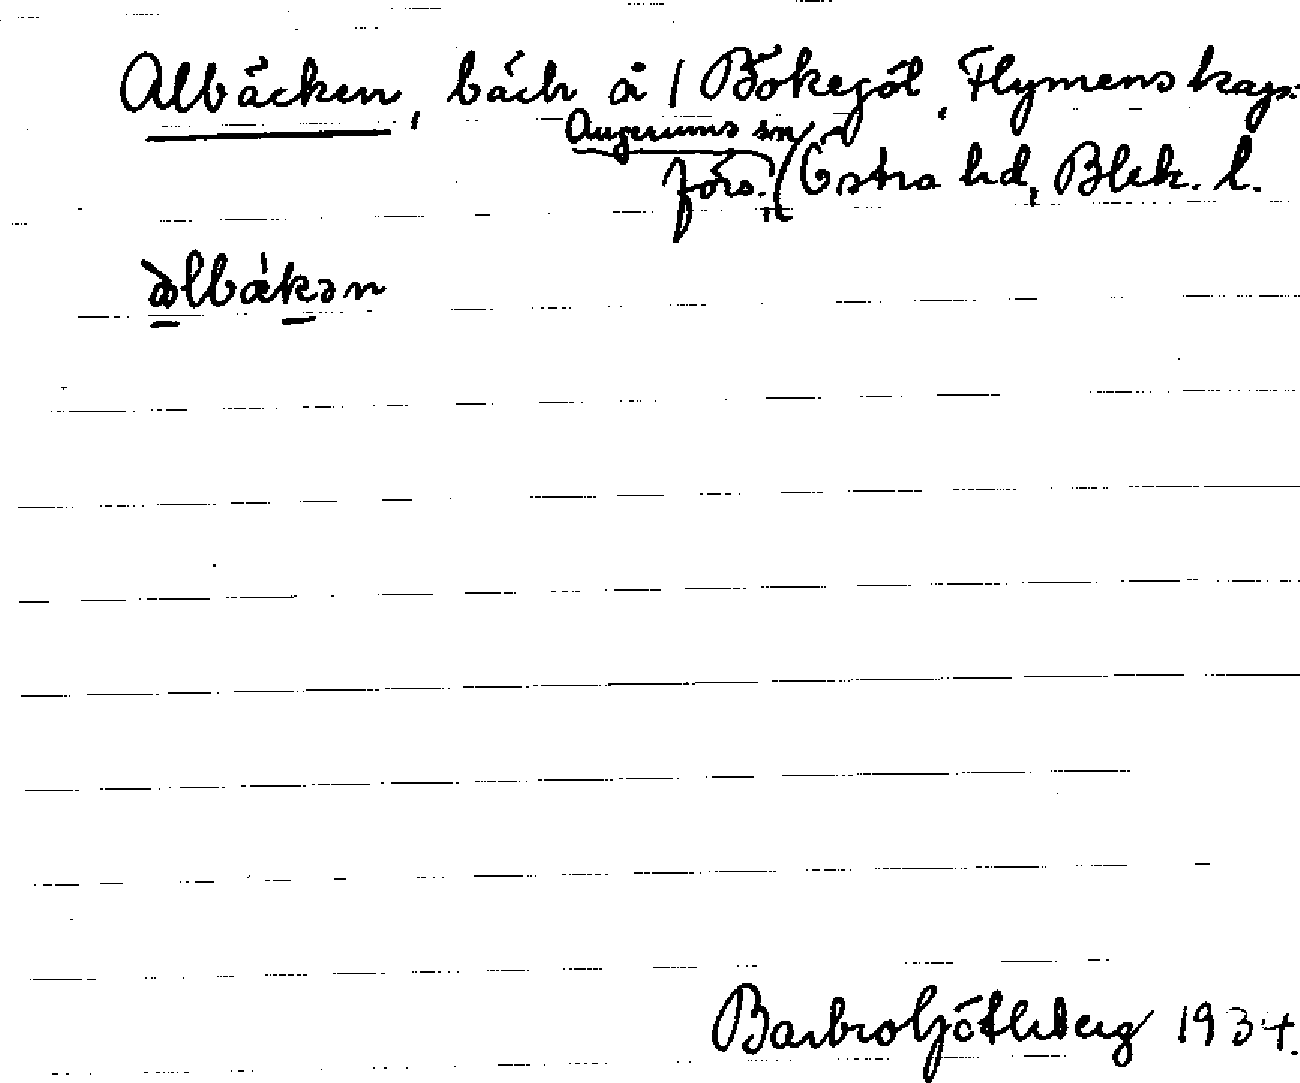 Albäcken, bäck å / Bökegöl, Flymens kap.
Augerums sn
förs. / Östra hd, Blek. l.
Barbro Götlind 1934.